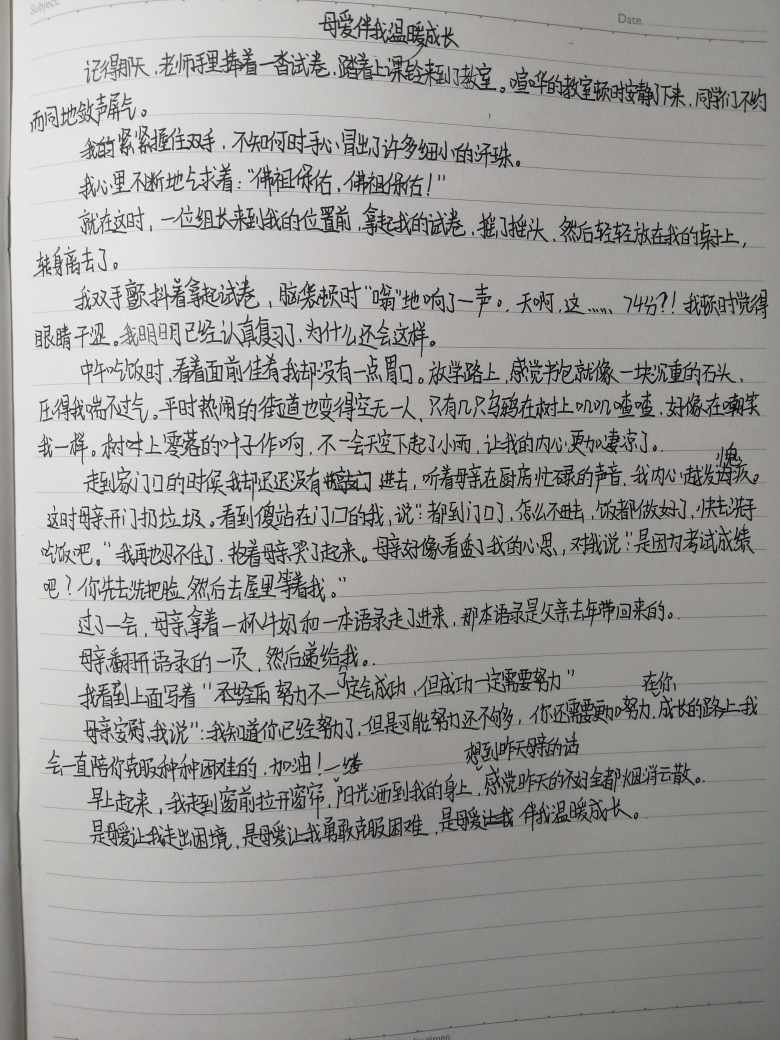 Subject:
Date.
母爱伴我温暖成长
记得那天,老师手里捧着一沓试卷,踏着上课铃来到了教室。喧哗的教室顿时安静了下来,同学们不约
而同地敛声屏气。
我的紧紧握住双手,不知何时手心冒出了许多细小的汗珠。
我心里不断地乞求着:“佛祖保佑,佛祖保佑!”
就在这时,一位组长来到我的位置前,拿起我的试卷,摇了摇头,然后轻轻放在我的桌子上,
转身离去了。
我双手颤抖着拿起试卷,脑袋顿时“嗡”地响了一声。天啊,这……74分?!我顿时觉得
眼睛干涩。我明明已经认真复习了,为什么还会这样。
中午吃饭时,看着面前佳肴我却没有一点胃口。放学路上,感觉书包就像一块沉重的石头,
压得我喘不过气。平时热闹的街道也变得空无一人,只有几只乌鸦在树上叽叽喳喳,好像在嘲笑
我一样。树上零落的叶子作响,不一会天空下起了小雨,让我的内心更加凄凉了。
走到家门口的时候我却迟迟没有进去,听着母亲在厨房忙碌的声音,我内心越发愧疚。
这时母亲开门扔垃圾。看到傻站在门口的我,说:“都到门口了,怎么不进去,饭都做好了,快去洗手
吃饭吧。”我再也忍不住了,抱着母亲哭了起来。母亲好像看透了我的心思,对我说:“是因为考试成绩
吧?你先去洗把脸,然后去屋里等着我。”
过了一会,母亲拿着一杯牛奶和一本语录走了进来,那本语录是父亲去年带回来的。
母亲翻开语录的一页,然后递给了我。
我看到上面写着“努力不一定会成功,但成功一定需要努力”
母亲安慰我说:“我知道你已经努力了,但是可能努力还不够多,你还需要更加努力,在你成长的路上我
会一直陪你克服种种困难的,加油!”
早上起来,我走到窗前拉开窗帘,一缕阳光洒到我的身上,想到昨天母亲的话感觉昨天的不好全都烟消云散。
是母爱让我走出困境,是母爱让我勇敢克服困难,是母爱伴我温暖成长。